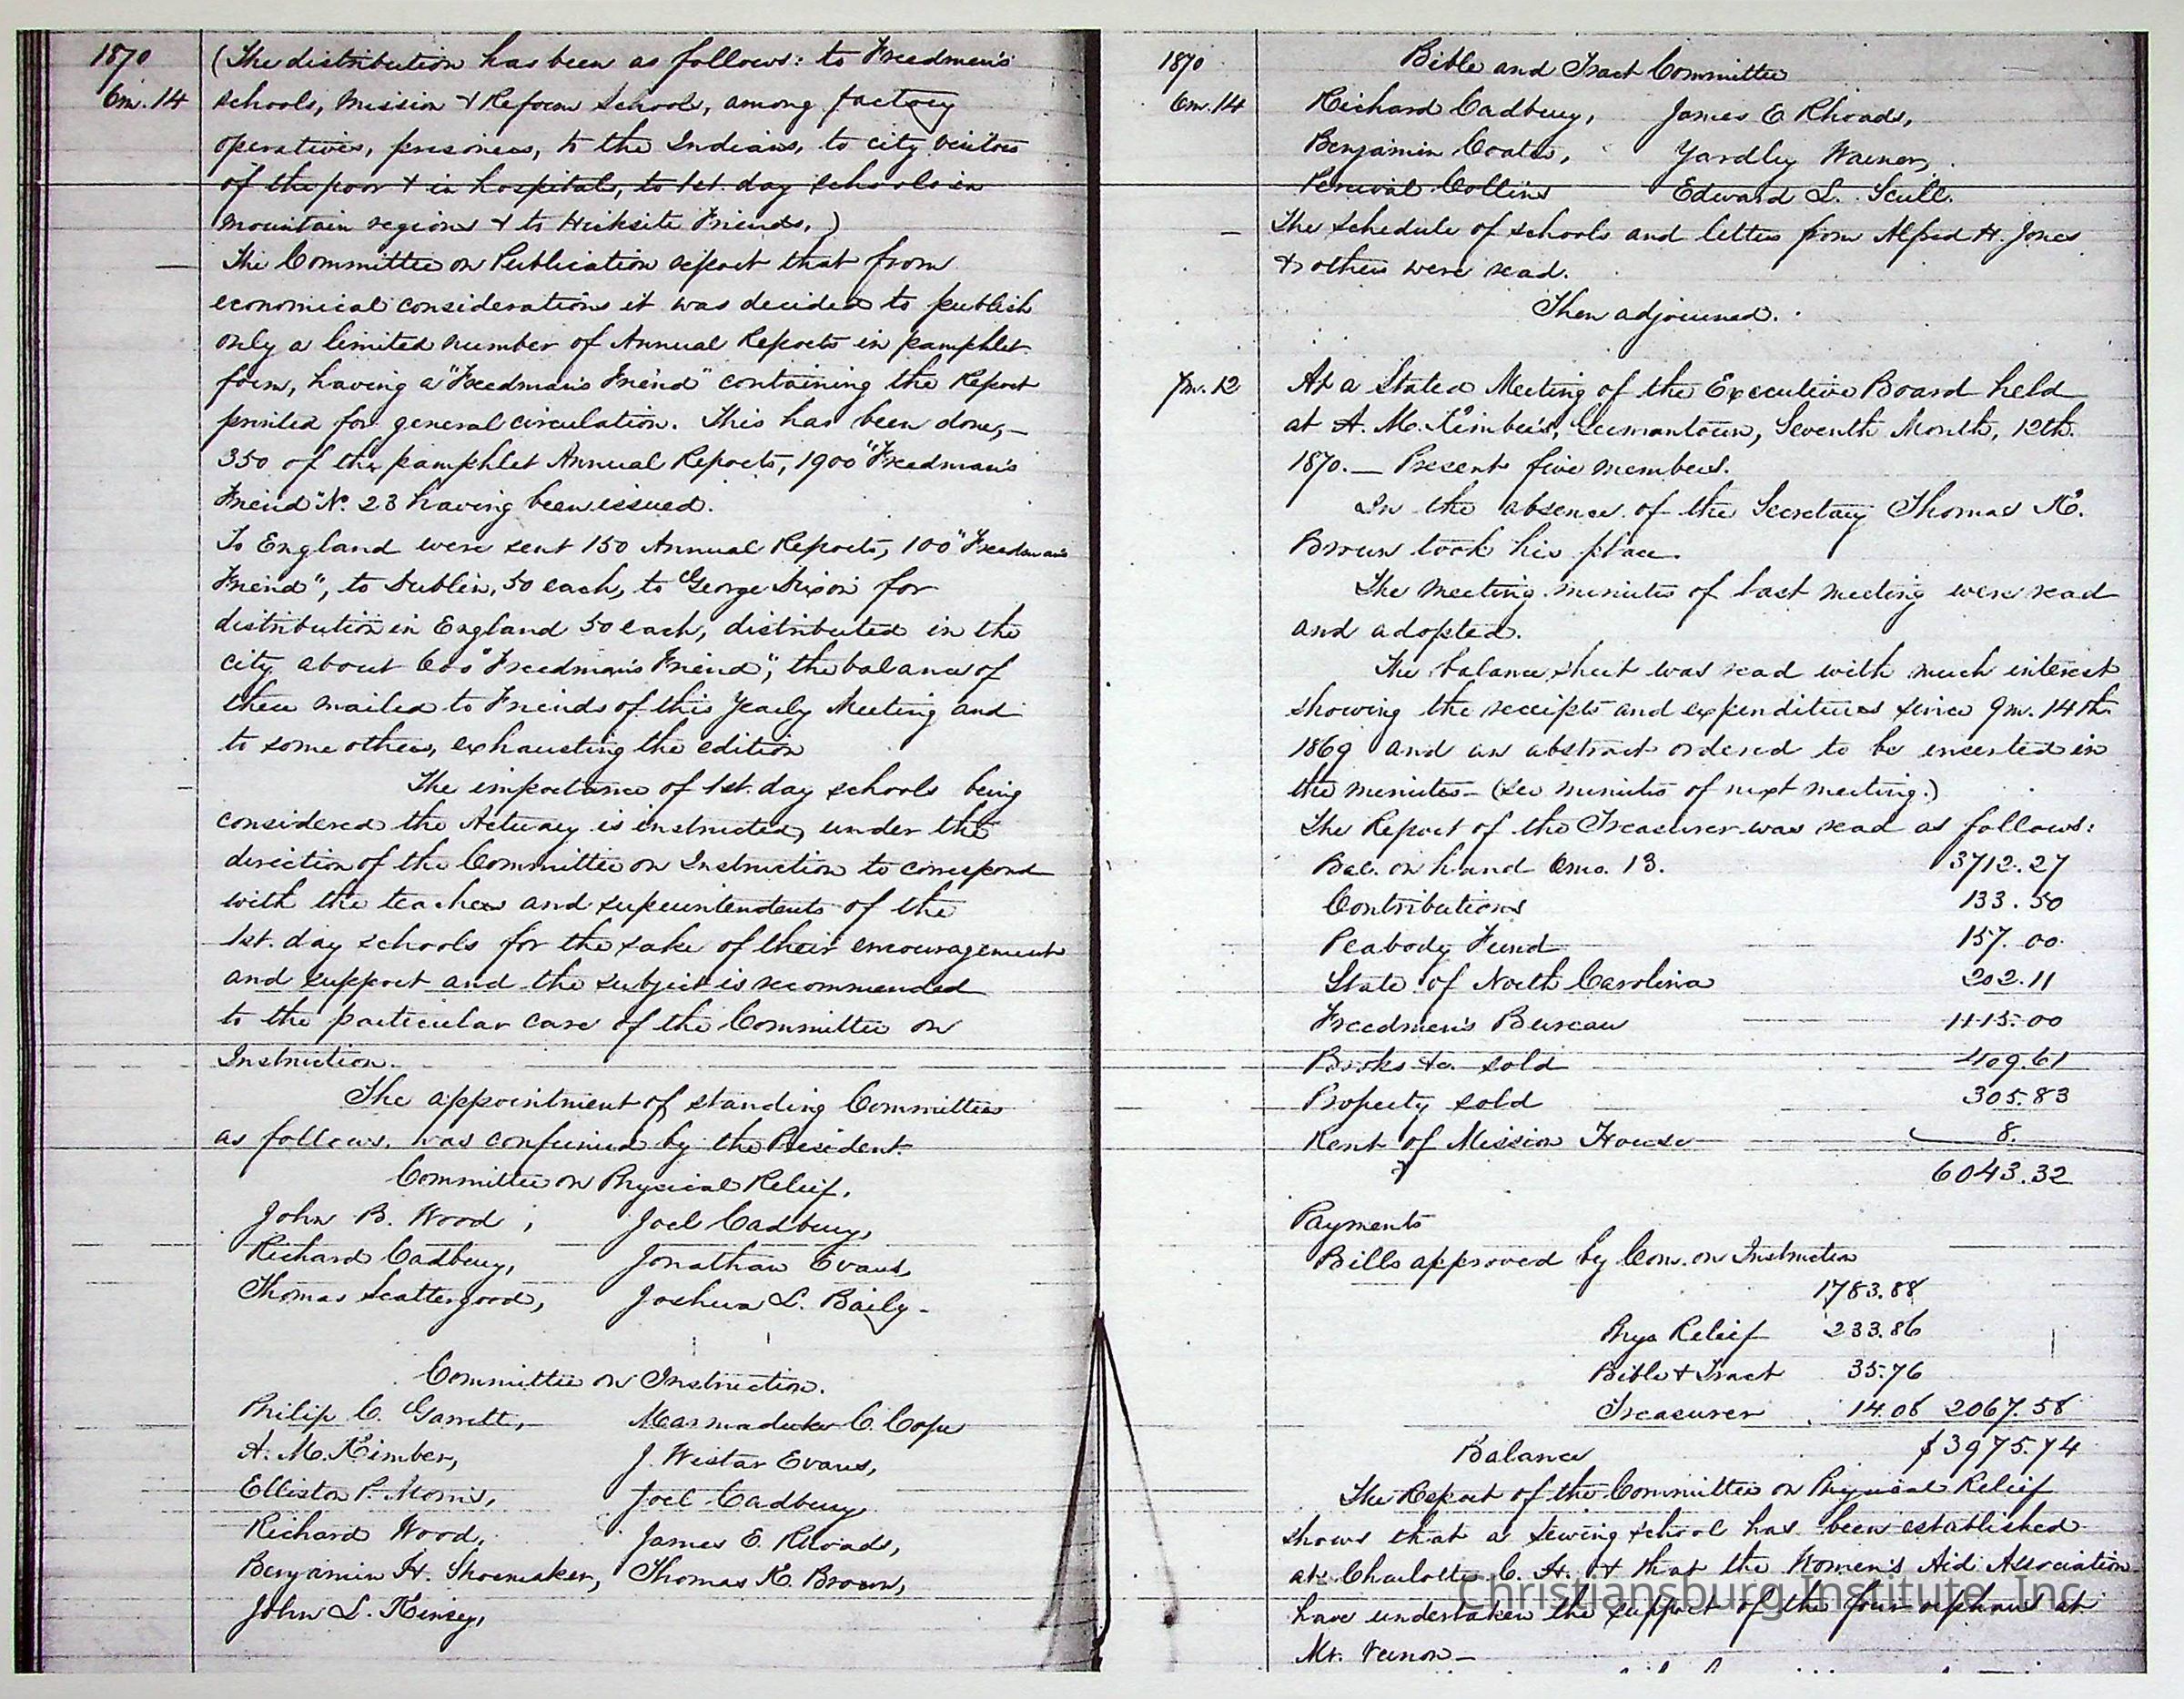 1870
6m. 14
(The distribution has been as follows: to Freedmen's
schools, Mission & Reform Schools, among factory
operatives, prisoners, to the Indians, to city visitors
of the poor & in hospitals, to 1st. day schools in
mountain regions & to Hicksite Friends.)
The Committee on Publication report that from
economical considerations it was decided to publish
only a limited number of Annual Reports in pamphlet
form, having a "Freedman's Friend" containing the Report
printed for general circulation. This has been done,—
350 of the pamphlet Annual Reports, 1900 "Freedman's
Friend" No. 23 having been issued.
To England were sent 150 Annual Reports, 100 "Freedman's
Friend", to Dublin, 50 each, to George Dixon for
distribution in England 50 each, distributed in the
city about 600 "Freedman's Friend", the balance of
them mailed to Friends of this Yearly Meeting and
to some others, exhausting the edition
The importance of 1st. day schools being
considered the Actuary is instructed, under the
direction of the Committee on Instruction to correspond
with the teachers and superintendents of the
1st. day schools for the sake of their encouragement
and support and the subject is recommended
to the particular care of the Committee on
Instruction.
The appointment of standing Committees
as follows, was confirmed by the President.
Committee on Physical Relief.
John B. Wood, Joel Cadbury,
Richard Cadbury, Jonathan Evans,
Thomas Scattergood, Joshua L. Baily-
Committee on Instruction.
Philip C. Garrett, Marmaduke C. Cope
A. M. Kimber, J. Wistar Evans,
Elliston P. Morris, Joel Cadbury,
Richard Wood, James E. Rhoads,
Benjamin H. Shoemaker, Thomas K. Brown,
John L. Kinsey,
1870
6m. 14
Bible and Tract Committee
Richard Cadbury, James E Rhoads,
Benjamin Coates, Yardley Warner,
Percival Collins Edward L. Scull.
The schedule of schools and letters from Alfred H. Jones
& others were read.
Then adjourned.
7m. 12
At a Stated Meeting of the Executive Board held
at A. M. Kimber's, Germantown, Seventh Month, 12th.
1870. — Present five members.
In the absence of the Secretary Thomas K.
Brown took his place.
The meeting minutes of last meeting were read
and adopted.
The balance sheet was read with much interest
showing the receipts and expenditures since 9m. 14th.
1869 and an abstract ordered to be inserted in
the minutes — (see minutes of next meeting.)
The Report of the Treasurer was read as follows:
Bal. on hand 6mo. 13. 3712.27
Contributions 133.50
Peabody Fund 157.00
State of North Carolina 202.11
Freedmen's Bureau 1115.00
Books &c. sold 409.61
Property sold 305.83
Rent of Mission House 8.
6043.32
Payments
Bills approved by Com. on Instruction
1783.88
Phys Relief 233.86
Bible & Tract 35.76
Treasurer 14.08 2067.58
Balance $3975.74
The Report of the Committee on Physical Relief
shows that a sewing school has been established
at Charlotte C. H. & that the Women's Aid Association
have undertaken the support of the four orphans at
Mt. Vernon —
Christiansburg Institute, Inc.